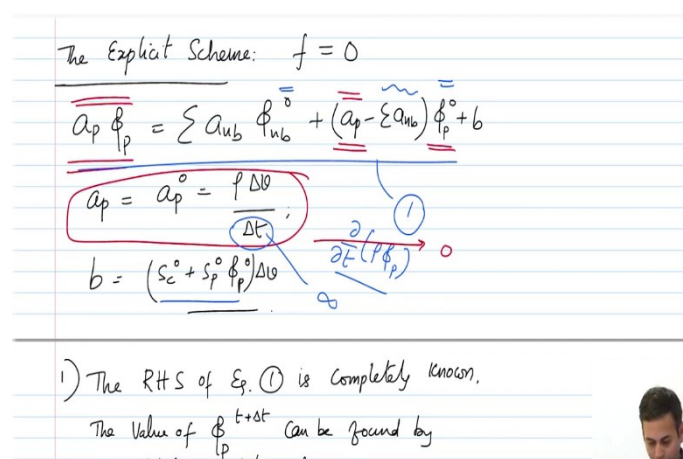 The Explicit Scheme: f = 0
a_P ϕ_P = Σ a_nb ϕ_nb^o + (a_P - Σ a_nb) ϕ_P^o + b
a_P = a_P^o = ρ Δϑ / Δt ; ①
∂/∂t (ρ ϕ_P) → 0
b = (S_C^o + S_P^o ϕ_P^o) Δϑ
∞
1) The RHS of Eq. ① is completely known.
The value of ϕ_P^{t+Δt} can be found by